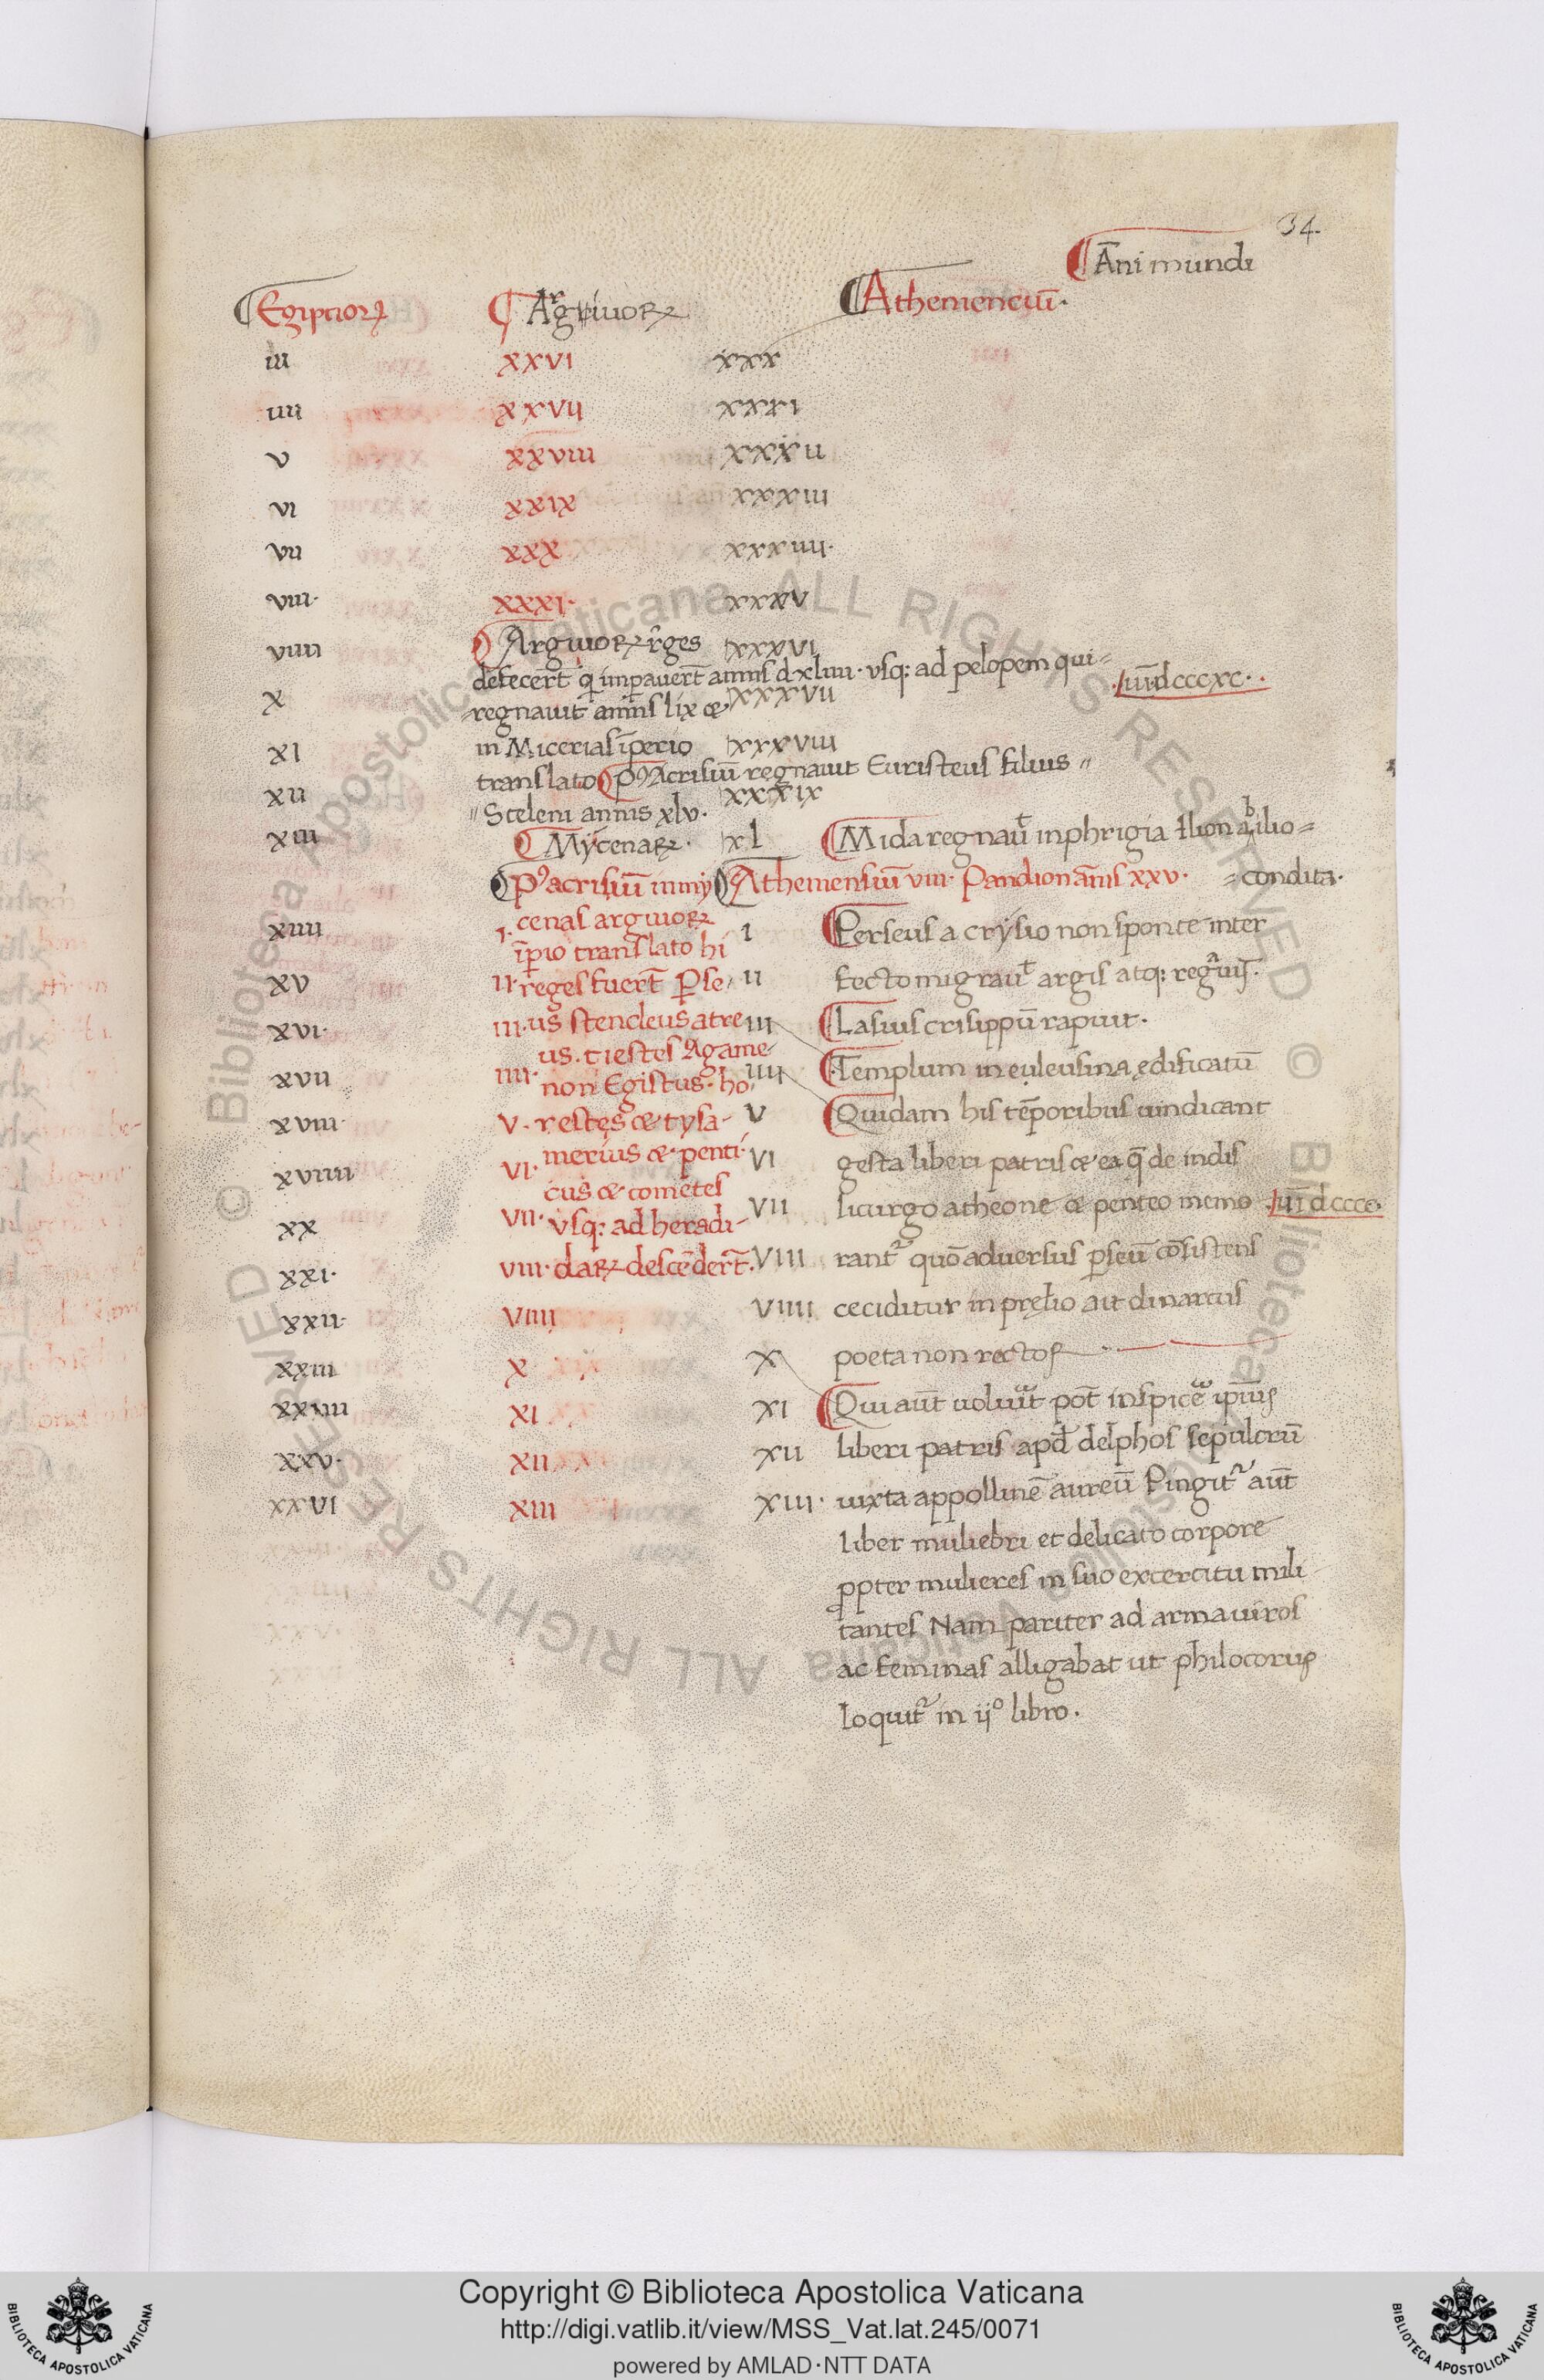 34
Āni mundi
Egiptiorꝝ Argiuorꝝ Athemenciū.
iii xxvi xxx
iiii xxvii xxxi
v xxviii xxxii
vi xxix xxxiii
vii xxx xxxiiii.
viii. xxxi. xxxv
viiii Argiuorꝝ r̄ges xxxvi
defecert̄ q imꝑauert̄ annis d.xliiii. vsq: ad pelopem qui= .iiī.dcccxc..
x =regnauit annis lix æ xxxvii
xi in Micerias īperio xxxviii
translato P' Acrisiū regnauit Euristeus filius =
xii xxxix
= Steleni annis xlv.
xiii Mẏcenaꝝ. xl Mida regnau̅t in phrigia Ilion ab ilio =
P' acrisiū in mẏ Athemensiū viii. Pandion ān̄is xxv. = condita.
cenas argiuorꝝ
xiiii i. i Perseus a crẏsio non sponte inter
īpio translato hi
xv ii. reges fuert̄ ꝑse ii fecto migrau̅t argis atq: regᵃuis.
xvi. iii. us steneleus atre iii Lasius crisippū rapuit.
us. tiestes Agame-
xvii iiii. iiii Templum in euleusina ędificatū
non Egistus. ho
xviii. v. restęs æ tysa- v Quidam his tēporibus uindicant
xviiii vi. merius æ penti. vi gesta liberi patris æ ea q̄ de indis
cus æ cometes
xx vii. vsq: ad heradi- vii licurgo atheone æ penteo memo .iiī dcccc.
xxi. viii. darꝝ descēdert̄. viii rantʳ quō aduersus ꝑseū cōsistens
xxii. viiii viiii ceciditur in pręlio ait dinarcus
xxiii x x poeta non rector
xxiiii xi xi Qui aūt uolu̅t pot̄ inspicē ip̄ius
xxv. xii xii liberi patris apd̄ delphos sepulcrū
xxvi xiii xiii. iuxta appollinē aureū Pingitʳ aūt
liber muliebri et delicato corpore
ꝓpter mulieres in suo exercitu mili
tantes Nam pariter ad arma uiros
ac feminas alligabat ut philocorus
loquitʳ in ijº libro.
© Biblioteca Apostolica Vaticana ALL RIGHTS RESERVED © Biblioteca Apostolica Vaticana ALL RIGHTS RESERVED
Copyright © Biblioteca Apostolica Vaticana
http://digi.vatlib.it/view/MSS_Vat.lat.245/0071
powered by AMLAD·NTT DATA
BIBLIOTECA APOSTOLICA VATICANA
BIBLIOTECA APOSTOLICA VATICANA